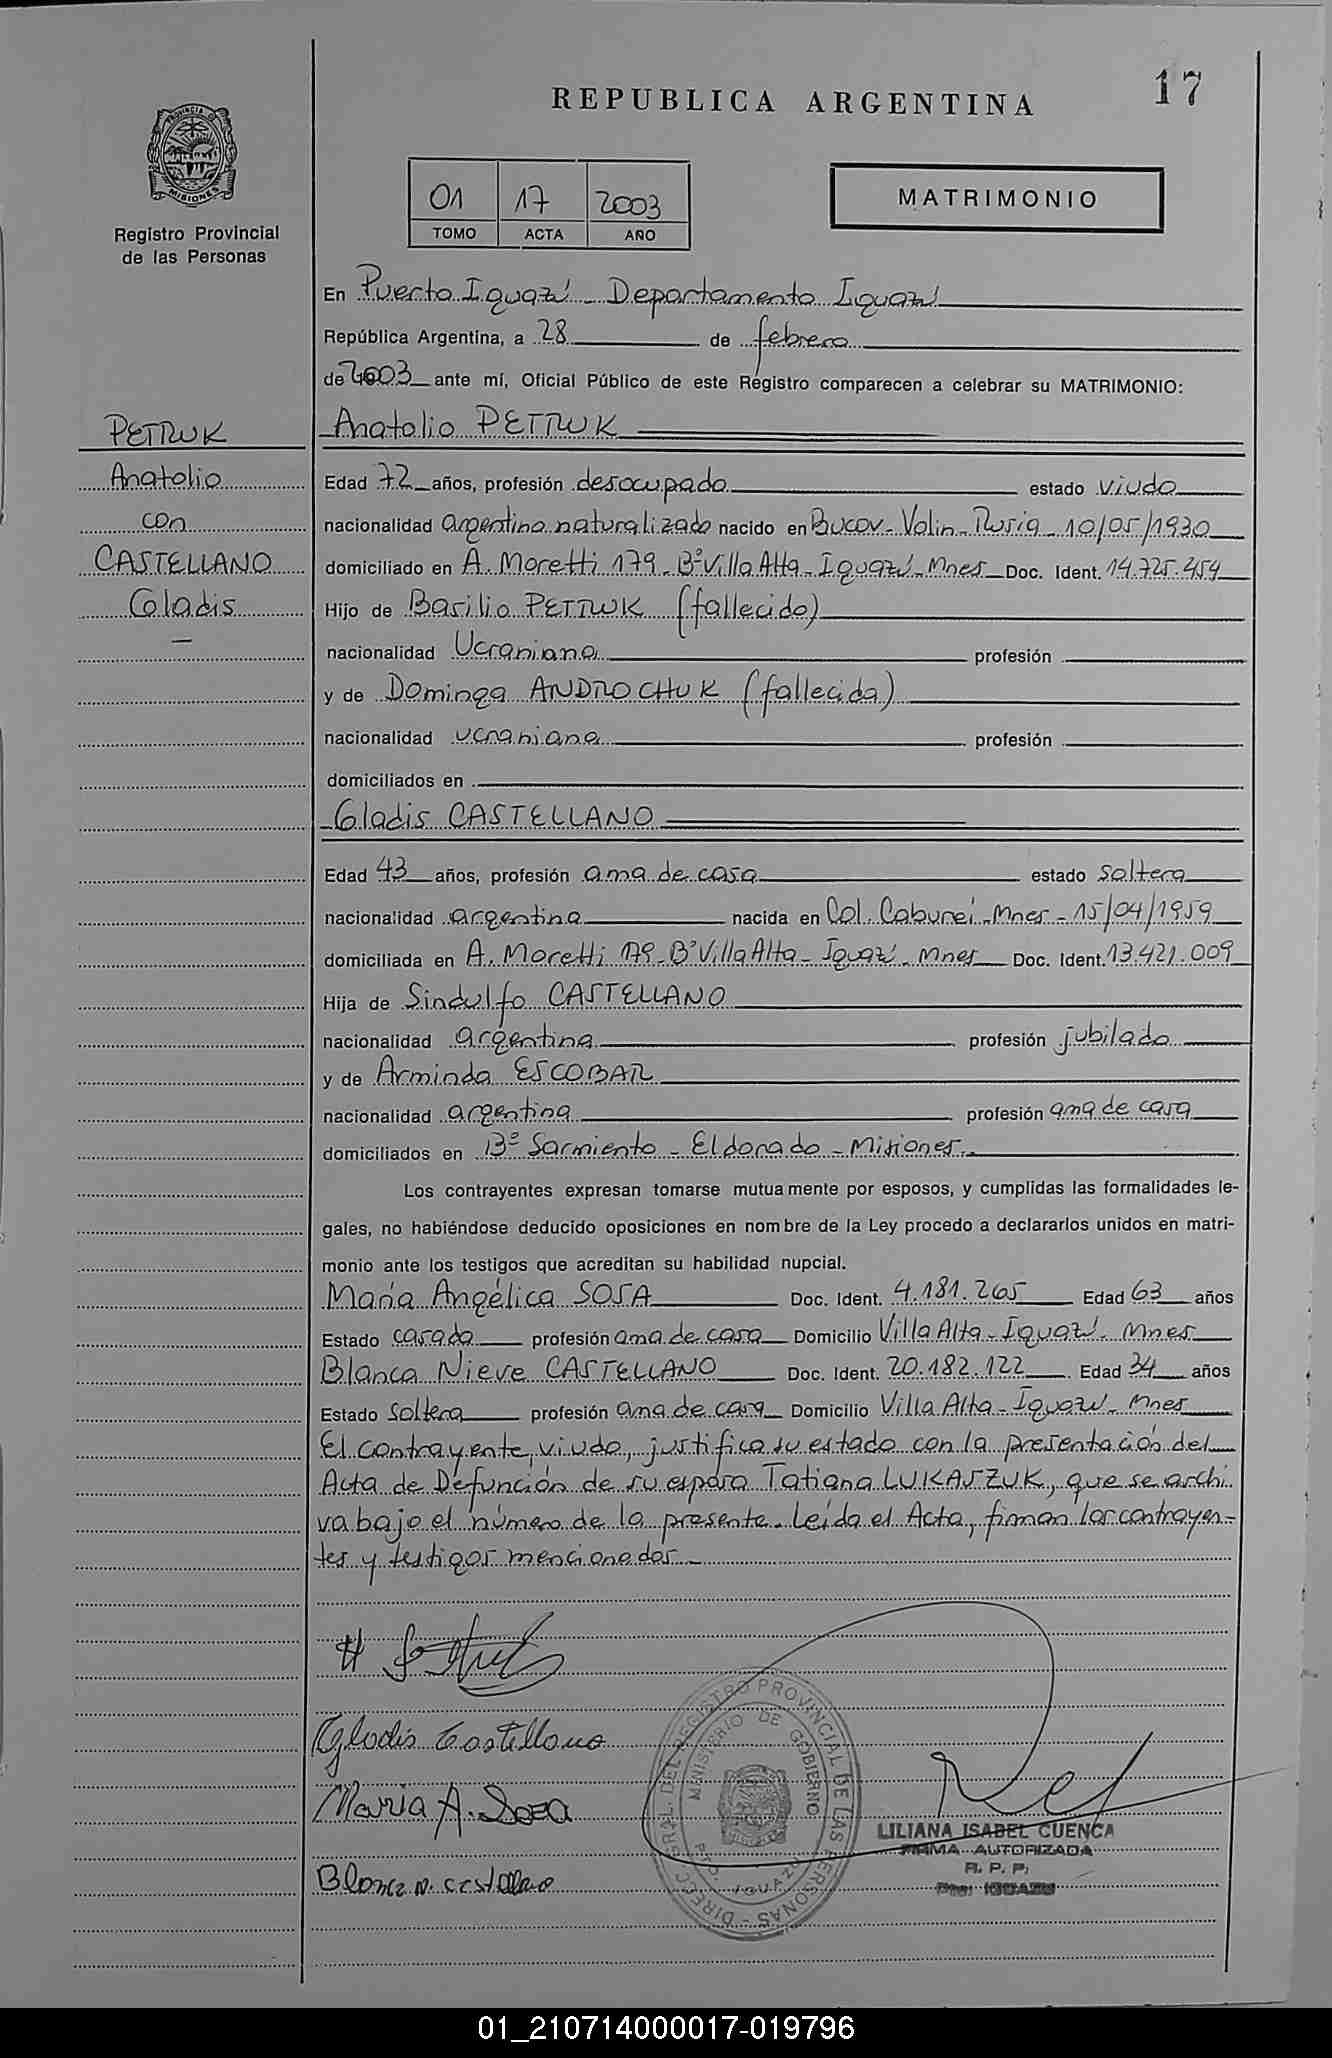 17
REPUBLICA ARGENTINA
PROVINCIA DE MISIONES
Registro Provincial
de las Personas
01 17 2003
TOMO ACTA AÑO
MATRIMONIO
En Puerto Iguazú - Departamento Iguazú
República Argentina, a 28 de febrero
de 2003 ante mí, Oficial Público de este Registro comparecen a celebrar su MATRIMONIO:
PETRUK
Anatolio
con
CASTELLANO
Gladis
Anatolio PETRUK
Edad 72 años, profesión desocupado estado viudo
nacionalidad argentino naturalizado nacido en Bucov - Volin - Rusia - 10/05/1930
domiciliado en A. Moretti 179 - Bº Villa Alta - Iguazú - Mnes Doc. Ident. 14.725.454
Hijo de Basilio PETRUK (fallecido)
nacionalidad Ucraniana profesión
y de Dominga ANDROCHUK (fallecida)
nacionalidad ucraniana profesión
domiciliados en
Gladis CASTELLANO
Edad 43 años, profesión ama de casa estado soltera
nacionalidad argentina nacida en Col. Caburei - Mnes - 15/04/1959
domiciliada en A. Moretti 179 - Bº Villa Alta - Iguazú - Mnes Doc. Ident. 13.421.009
Hija de Sindulfo CASTELLANO
nacionalidad argentina profesión jubilado
y de Arminda ESCOBAR
nacionalidad argentina profesión ama de casa
domiciliados en Bº Sarmiento - Eldorado - Misiones.
Los contrayentes expresan tomarse mutuamente por esposos, y cumplidas las formalidades le-
gales, no habiéndose deducido oposiciones en nombre de la Ley procedo a declararlos unidos en matri-
monio ante los testigos que acreditan su habilidad nupcial.
María Angélica SOSA Doc. Ident. 4.181.265 Edad 63 años
Estado casada profesión ama de casa Domicilio Villa Alta - Iguazú - Mnes
Blanca Nieve CASTELLANO Doc. Ident. 20.182.122 Edad 34 años
Estado soltera profesión ama de casa Domicilio Villa Alta - Iguazú - Mnes
El contrayente, viudo, justifica su estado con la presentación del
Acta de Defunción de su esposa Tatiana LUKASZUK, que se archi
va bajo el número de la presente. Leída el Acta, firman los contrayen-
tes y testigos mencionados.
Gladis Castellano
Maria A. Sosa
Blanca N. Castellano
DIRECC. GRAL. DEL REGISTRO PROVINCIAL DE LAS PERSONAS
MINISTERIO DE GOBIERNO
PTO. IGUAZU
LILIANA ISABEL CUENCA
FIRMA AUTORIZADA
R. P. P.
Pto. IGUAZU
01_210714000017-019796